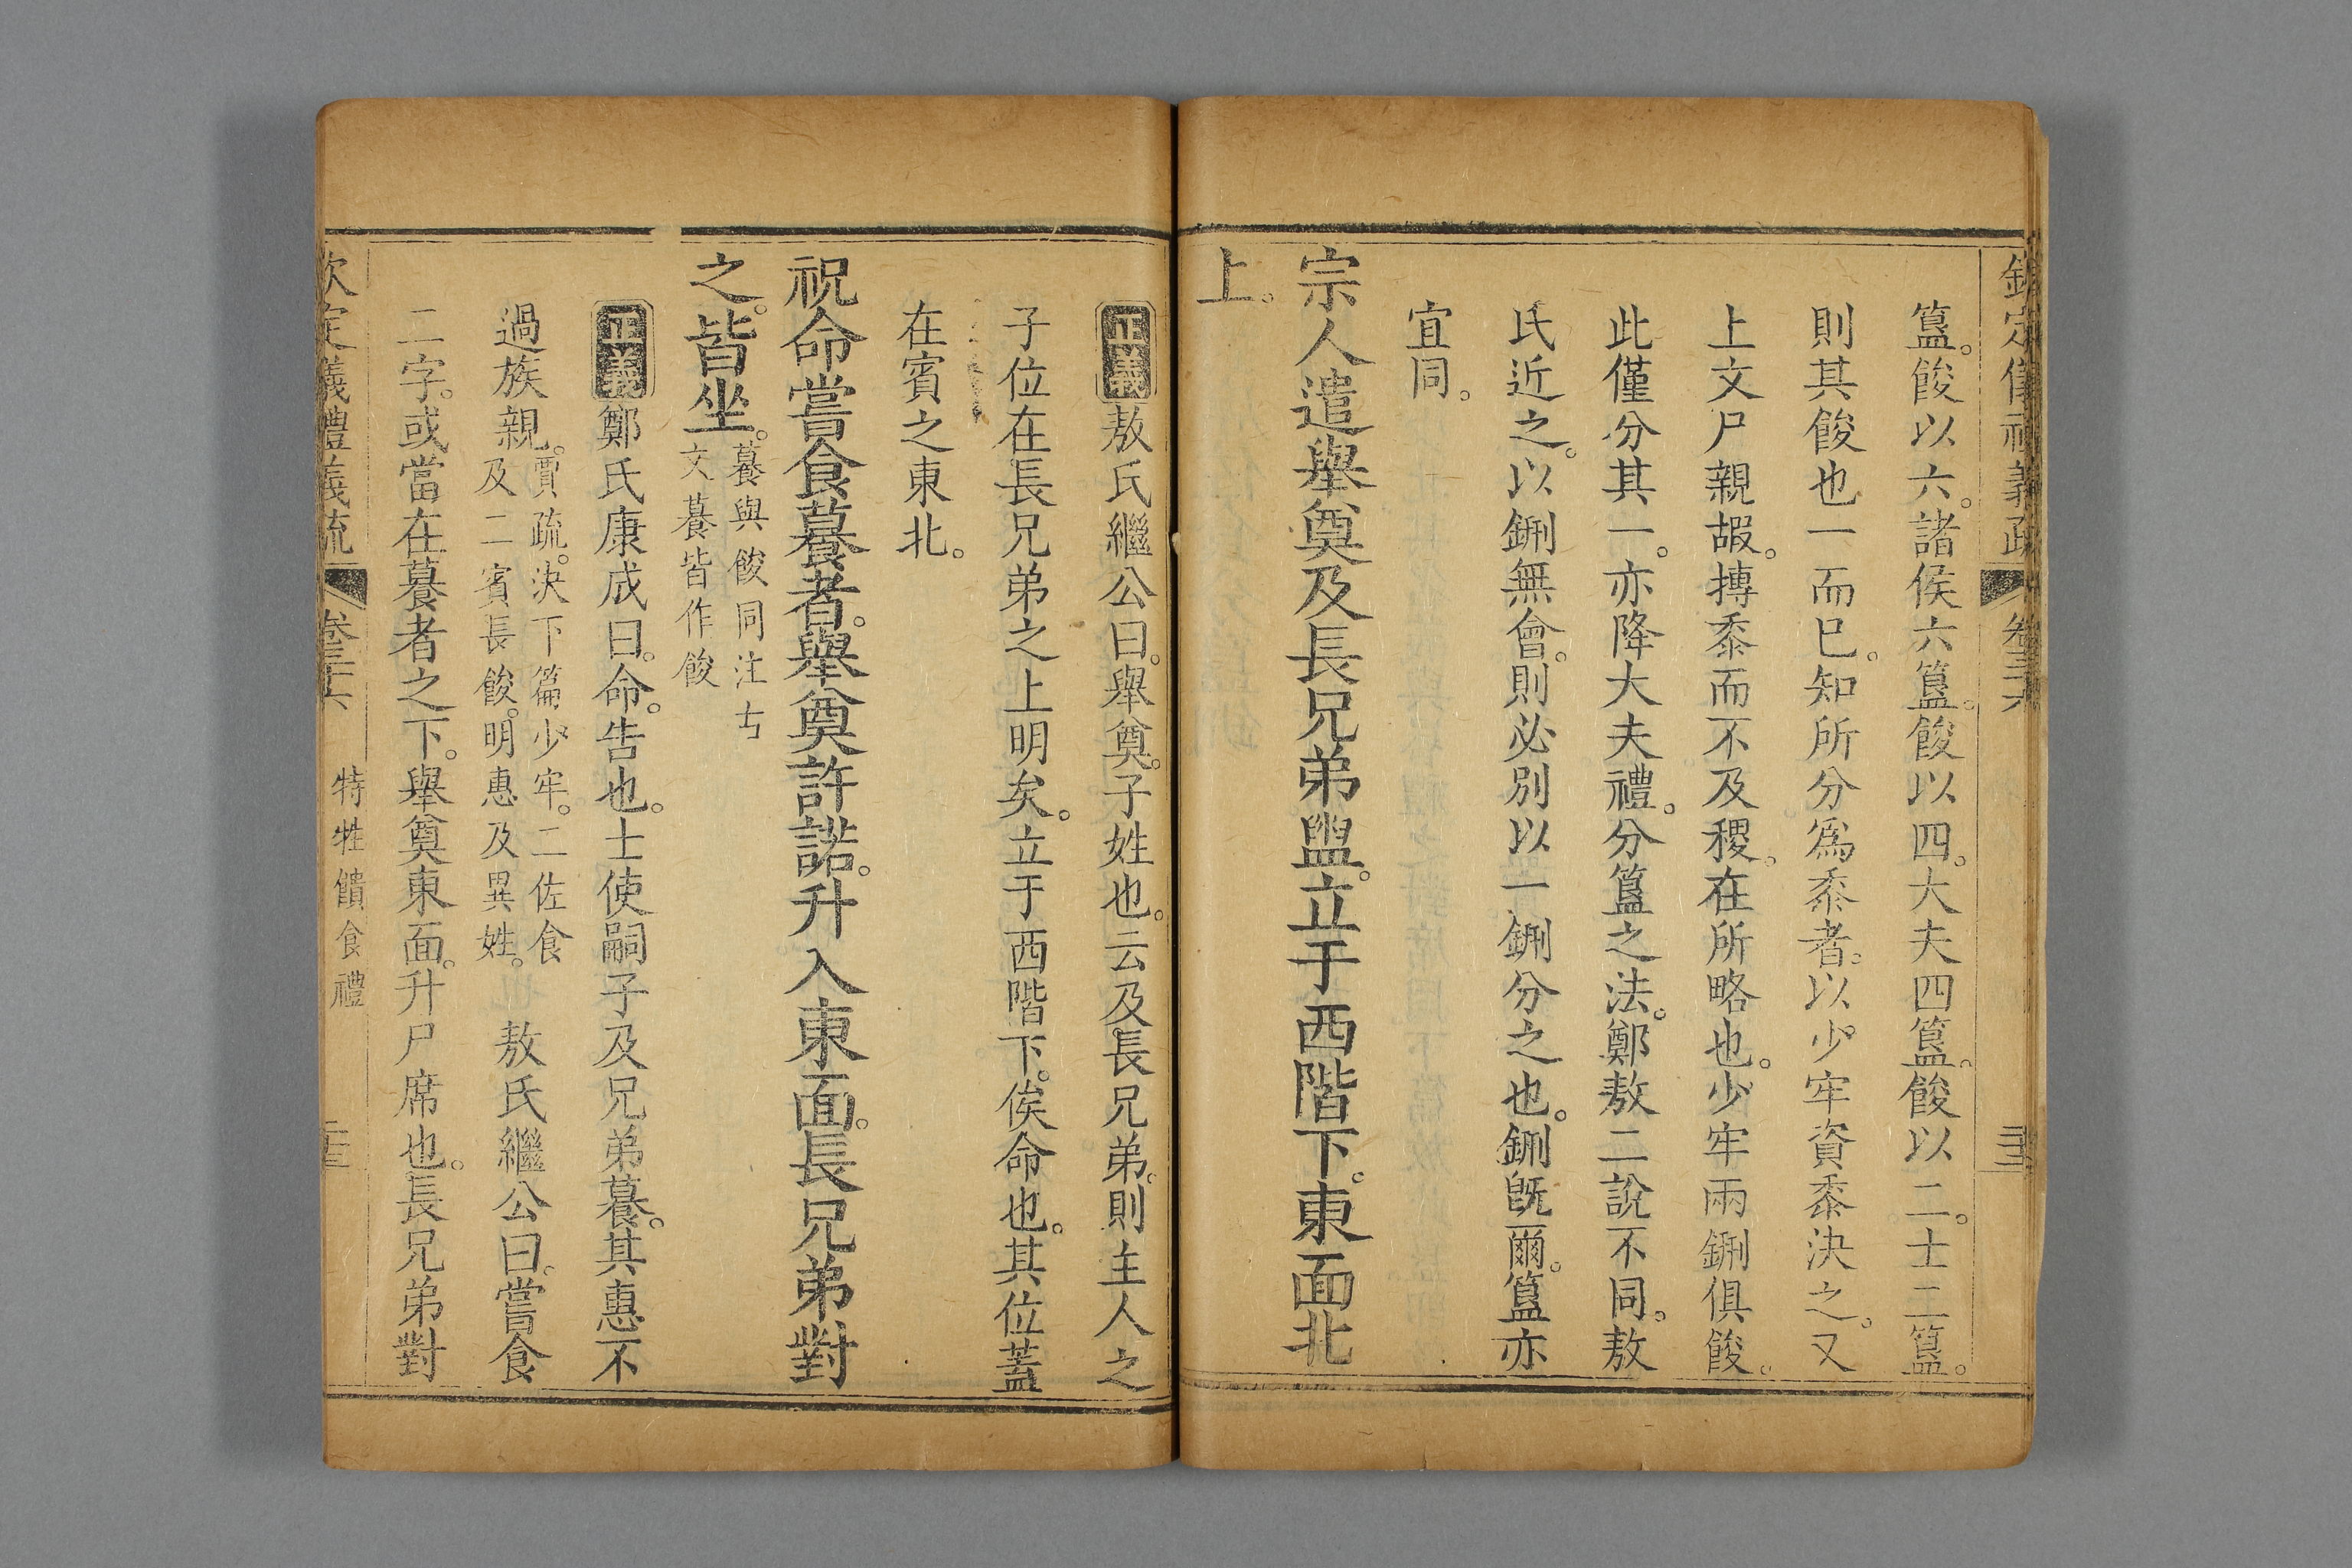 欽定儀禮義疏 卷三十六 二十二
簋。餕以六。諸侯六簋。餕以四。大夫四簋。餕以二。士二簋。
則其餕也一而已。知所分爲黍者。以少牢資黍決之。又
上文尸親嘏。摶黍而不及稷。在所略也。少牢兩鉶俱餕。
此僅分其一。亦降大夫禮。分簋之法。鄭敖二說不同。敖
氏近之。以鉶無會。則必別以一鉶分之也。鉶旣爾。簋亦
宜同。
宗人遣舉奠及長兄弟盥。立于西階下。東面北
上。
正義敖氏繼公曰。舉奠。子姓也。云及長兄弟。則主人之
子位在長兄弟之上明矣。立于西階下。俟命也。其位蓋
在賓之東北。
祝命嘗食䉵者。舉奠許諾。升入東面。長兄弟對
之。皆坐。䉵與餕同注古
文䉵皆作餕
正義鄭氏康成曰。命。告也。士使嗣子及兄弟䉵。其惠不
過族親。賈疏。決下篇少牢。二佐食
及二賓長餕。明惠及異姓。敖氏繼公曰。嘗食
二字。或當在䉵者之下。舉奠東面。升尸席也。長兄弟對
欽定儀禮義疏 卷三十六 特牲饋食禮 二十三